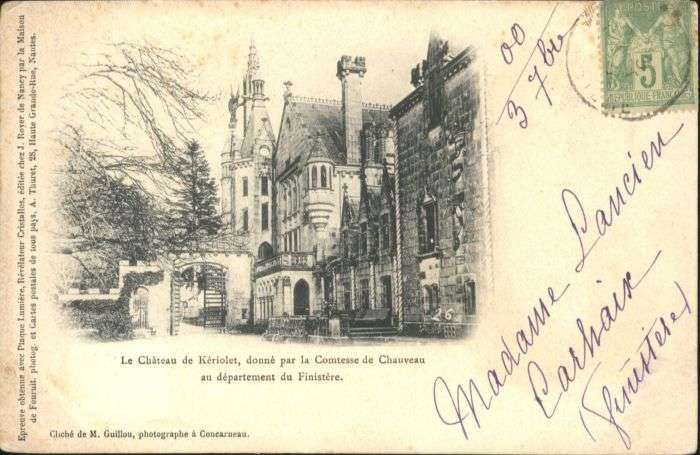 Epreuve obtenue avec Plaque Lumière, Révélateur Cristallos, éditée chez J. Royer de Nancy par la Maison
de Fournit. photog. et Cartes postales de tous pays. A. Thuret, 28, Haute Grande-Rue, Nantes.
POSTES
5
REPUBLIQUE FRANCAISE
3 7bre 00
Madame Lancien
Carhaix
(Finistère)
Le Château de Kériolet, donné par la Comtesse de Chauveau
au département du Finistère.
Cliché de M. Guillou, photographe à Concarneau.